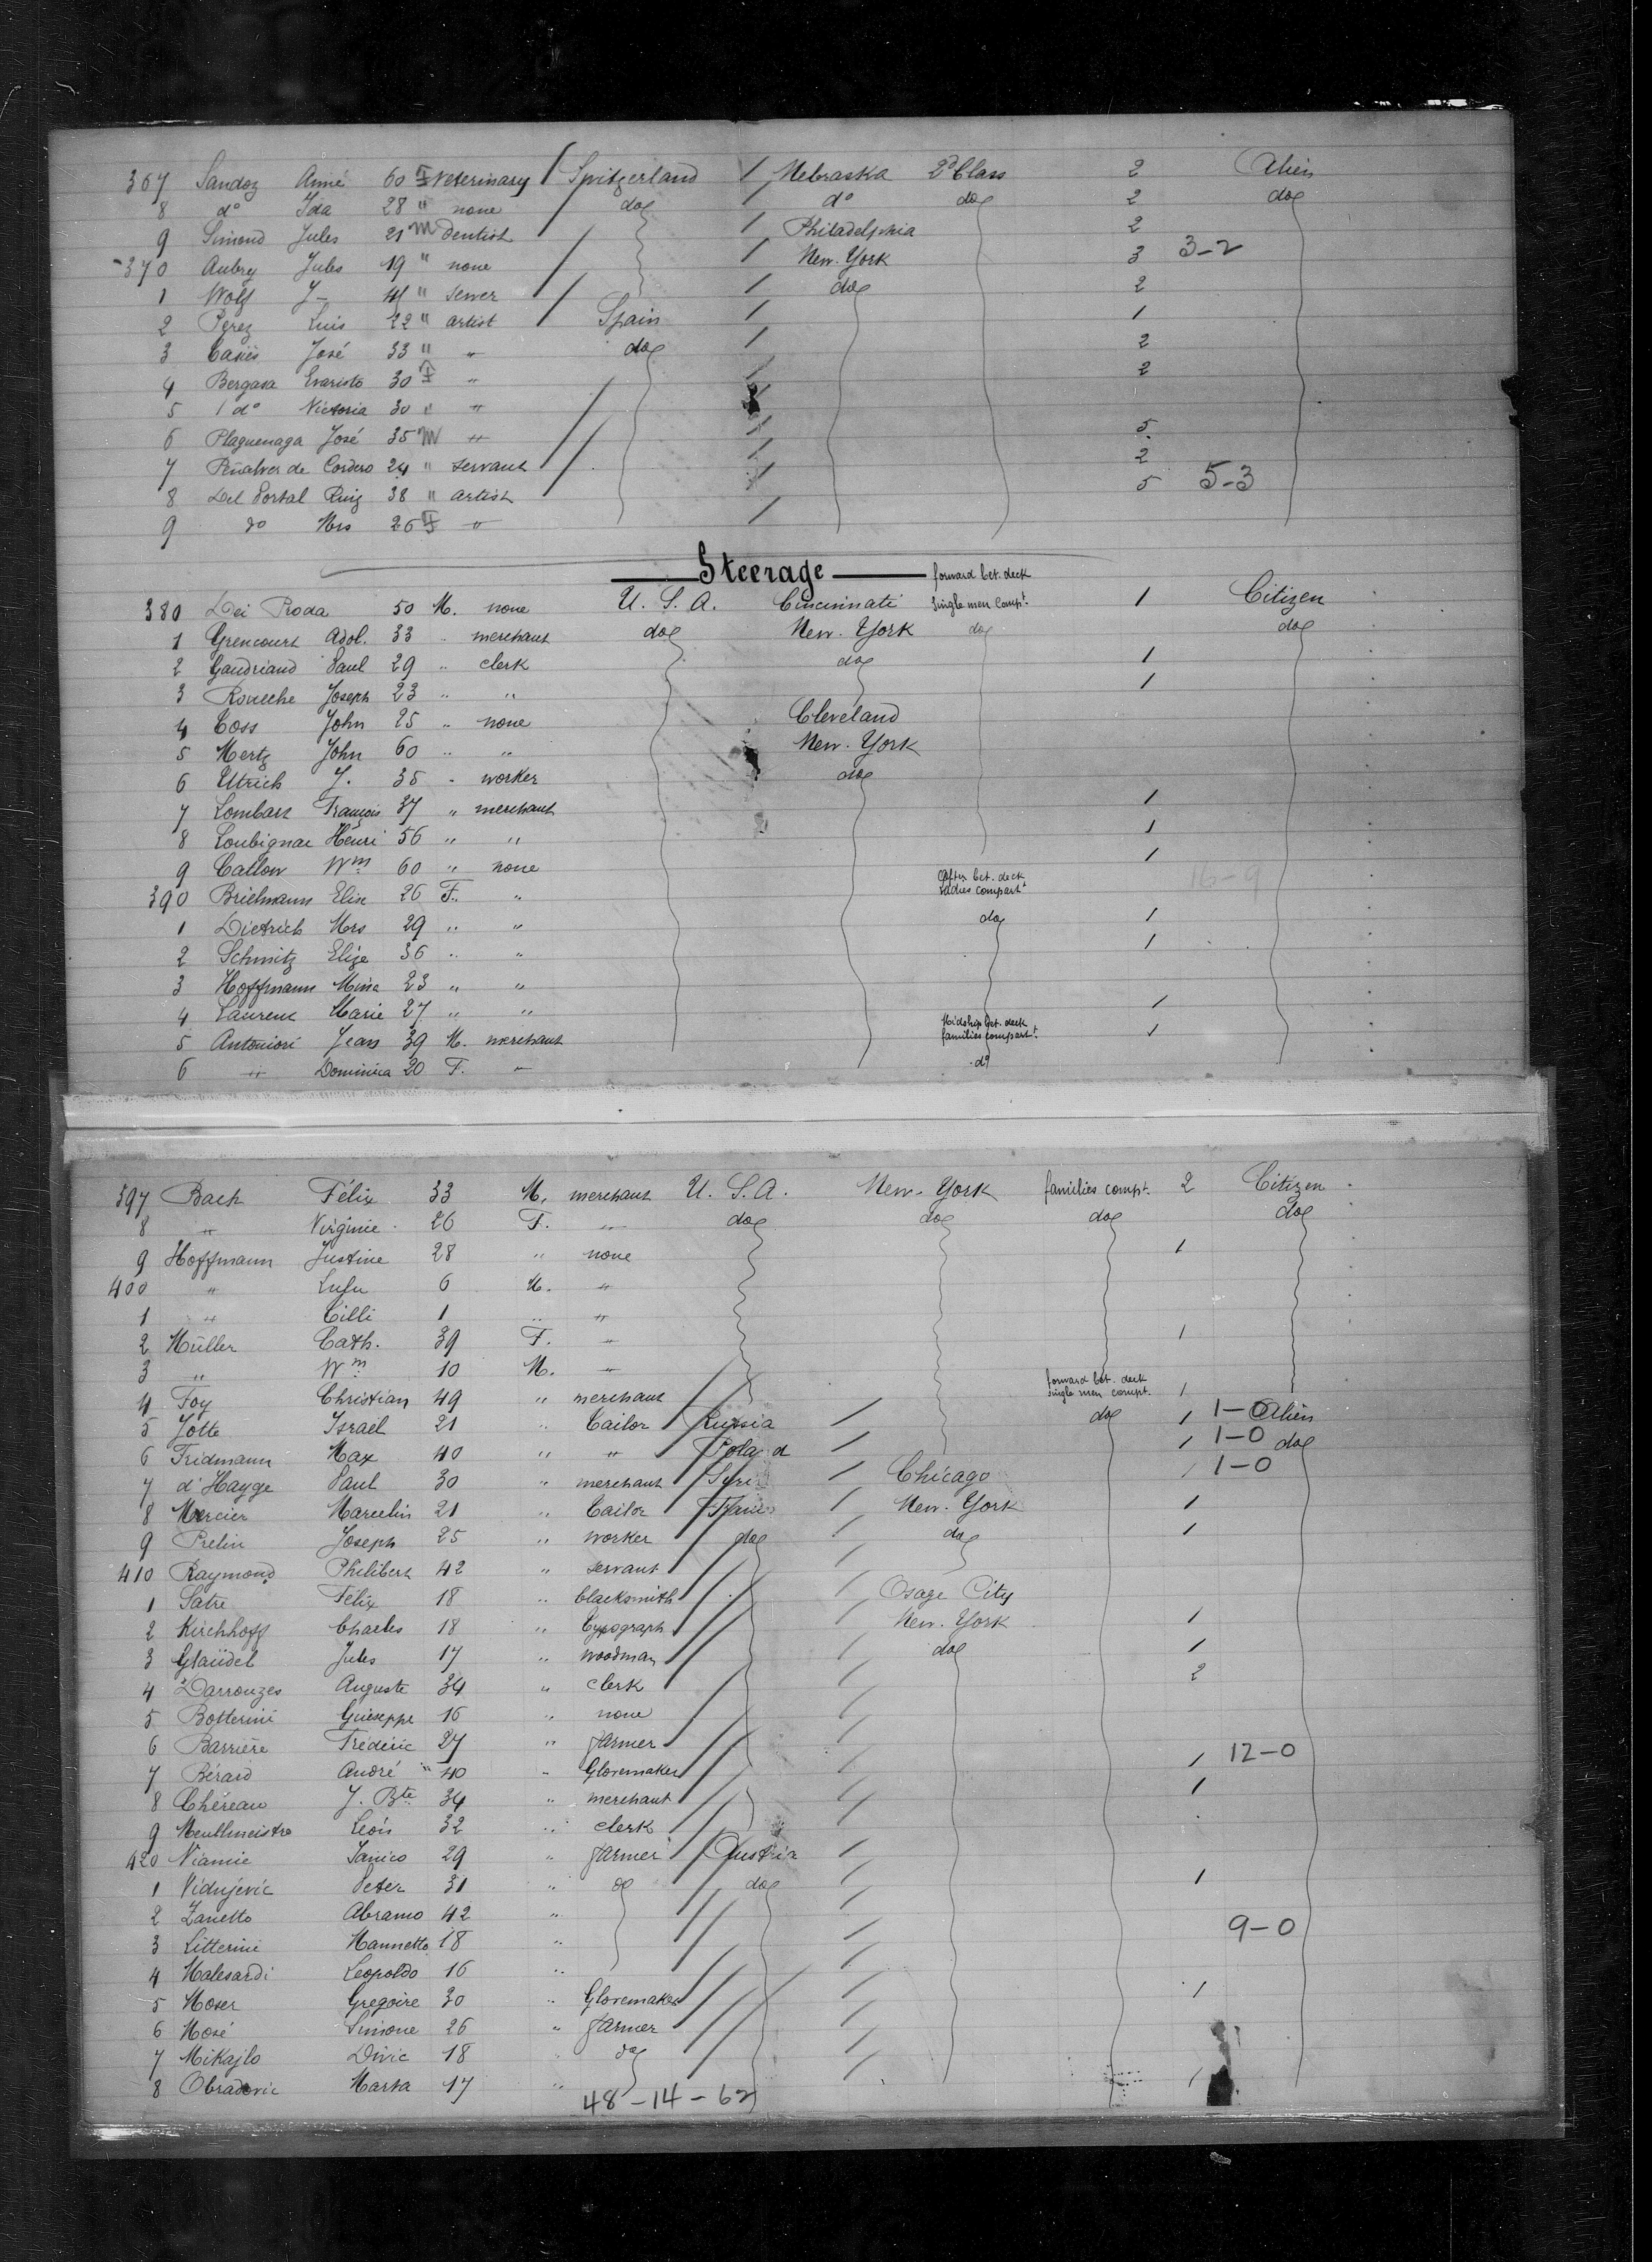 367 Sandoz Aimé 60 F veterinary / Switzerland / Nebraska 2d Class 2 Alien
8 do Ida 28 " none / do / do do 2 do
9 Simond Jules 21 M dentist / / Philadelphia 2
370 Aubry Jules 19 " none / / New-York 3 3-2
1 Wolf J- 41 " sewer / / do 2
2 Perez Luis 22 " artist / Spain / 1
3 José 33 " " do / 2
4 Bergasa Evaristo 30 F " / 2
5 do Victoria 30 " " /
6 Plaguenaga José 35 M " / / 5
7 Peñalver de Cordero 24 " servant / / 2
8 Del Portal Ruiz 38 " artist / / 5 5-3
9 do Mrs 26 F " /
Steerage
forward bet. deck
380 Dei Proda 50 M. none U. S. A. Cincinnati single men Compt. 1 Citizen
1 Grencourt Adol. 33 " merchant do New-York do do
2 Gaudriand Paul 29 " clerk do 1
3 Roueche Joseph 23 " " 1
4 Coss John 25 " none Cleveland
5 Mertz John 60 " " New-York
6 Ulrich J. 35 " worker do
7 Lombart François 37 " merchant 1
8 Loubignac Henri 56 " " 1
9 Catlow Wm 60 " none 1
After bet. deck
390 Brielmann Elise 26 F. " ladies compart 16-9
1 Dietrich Mrs 29 " " do 1
2 Schmitz Elize 36 " " 1
3 Hoffmann Mina 23 " "
4 Laurent Marie 27 " " 1
Midship bet. deck
5 Antoniori Jean 39 M. merchant families compart. 1
6 " Dominica 20 F. " do
397 Bach Félix 33 M. merchant U. S. A. New-York families compt. 2 Citizen
8 " Virginie 26 F. " do do do do
9 Hoffmann Justine 28 " none 1
400 " Lulu 6 M. "
1 " Cilli 1 " "
2 Müller Cath. 39 F. " 1
3 " Wm 10 M. "
forward bet. deck
4 Foy Christian 49 " merchant single men compt. 1
5 Jotte Israel 21 " Tailor Russia / do 1 1-0 Alien
6 Fridmann Max 40 " " Poland / 1 1-0 do
7 d'Hayge Paul 30 " merchant / Syri / Chicago 1 1-0
8 Mercier Marcelin 21 " Tailor / France / New-York 1
9 Prelin Joseph 25 " worker / do / do 1
410 Raymond Philibert 42 " servant / /
1 Satre Félix 18 " blacksmith / / Osage City
2 Kirchhoff Charles 18 " Typograph / / New-York 1
3 Glaüdel Jules 17 " woodman / / do 1
4 Darrouzes Auguste 34 " clerk / / 2
5 Botterini Guiseppe 16 " none /
6 Barrière Fréderic 27 " farmer / /
7 Bérard André 40 " Glovemaker / / 1 12-0
8 Chéreau J. Bte 34 " merchant / / 1
9 Meullmeistre Léon 32 " clerk / /
420 Niamic Janico 29 " farmer / Austria /
1 Vidnjevic Peter 31 " do do / 1
2 Zanetto Abramo 42 " / /
3 Litterini Mannetto 18 " / / 9-0
4 Malesardi Leopoldo 16 " / /
5 Moser Gregoire 30 " Glovemaker / / 1
6 Mosé Simone 26 " farmer / /
7 Mikajlo Divic 18 " do / /
8 Obradovic Marta 17 " / 1
48-14-62